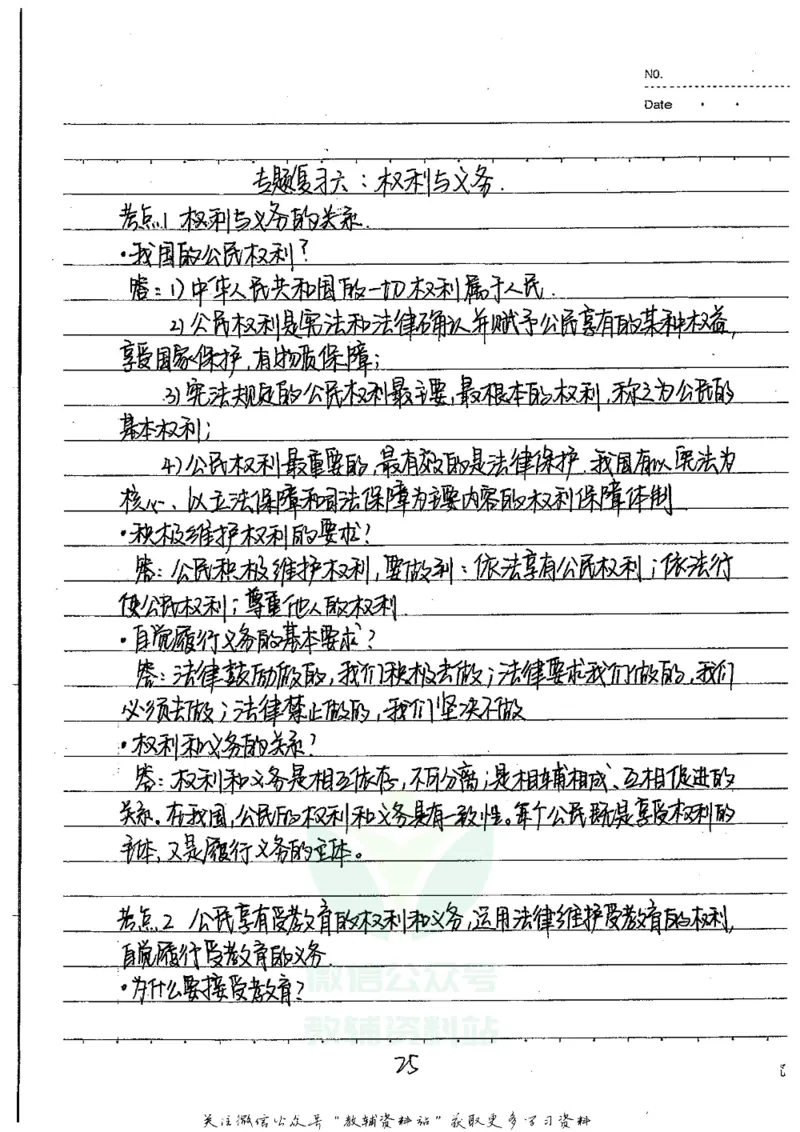 NO.
Date
专题复习六：权利与义务.
考点1 权利与义务的关系.
·我国的公民权利？
答：1)中华人民共和国的一切权利属于人民.
2)公民权利是宪法和法律确认并赋予公民享有的某种权益,
享受国家保护,有物质保障；
3)宪法规定的公民权利最主要,最根本的权利,称之为公民的
基本权利；
4)公民权利最重要的,最有效的是法律保护.我国有以宪法为
核心、以立法保障和司法保障为主要内容的权利保障体制
·积极维护权利的要求？
答：公民积极维护权利,要做到：依法享有公民权利；依法行
使公民权利；尊重他人的权利.
·自觉履行义务的基本要求？
答：法律鼓励做的,我们积极去做；法律要求我们做的,我们
必须去做；法律禁止做的,我们坚决不做
·权利和义务的关系？
答：权利和义务是相互依存,不可分离；是相辅相成、互相促进的
关系。在我国,公民的权利和义务具有一致性。每个公民既是享受权利的
主体,又是履行义务的主体。
考点2 公民享有受教育的权利和义务,运用法律维护受教育的权利,
自觉履行受教育的义务.
·为什么要接受教育？
微信公众号
教辅资料站
25
关注微信公众号"教辅资料站"获取更多学习资料